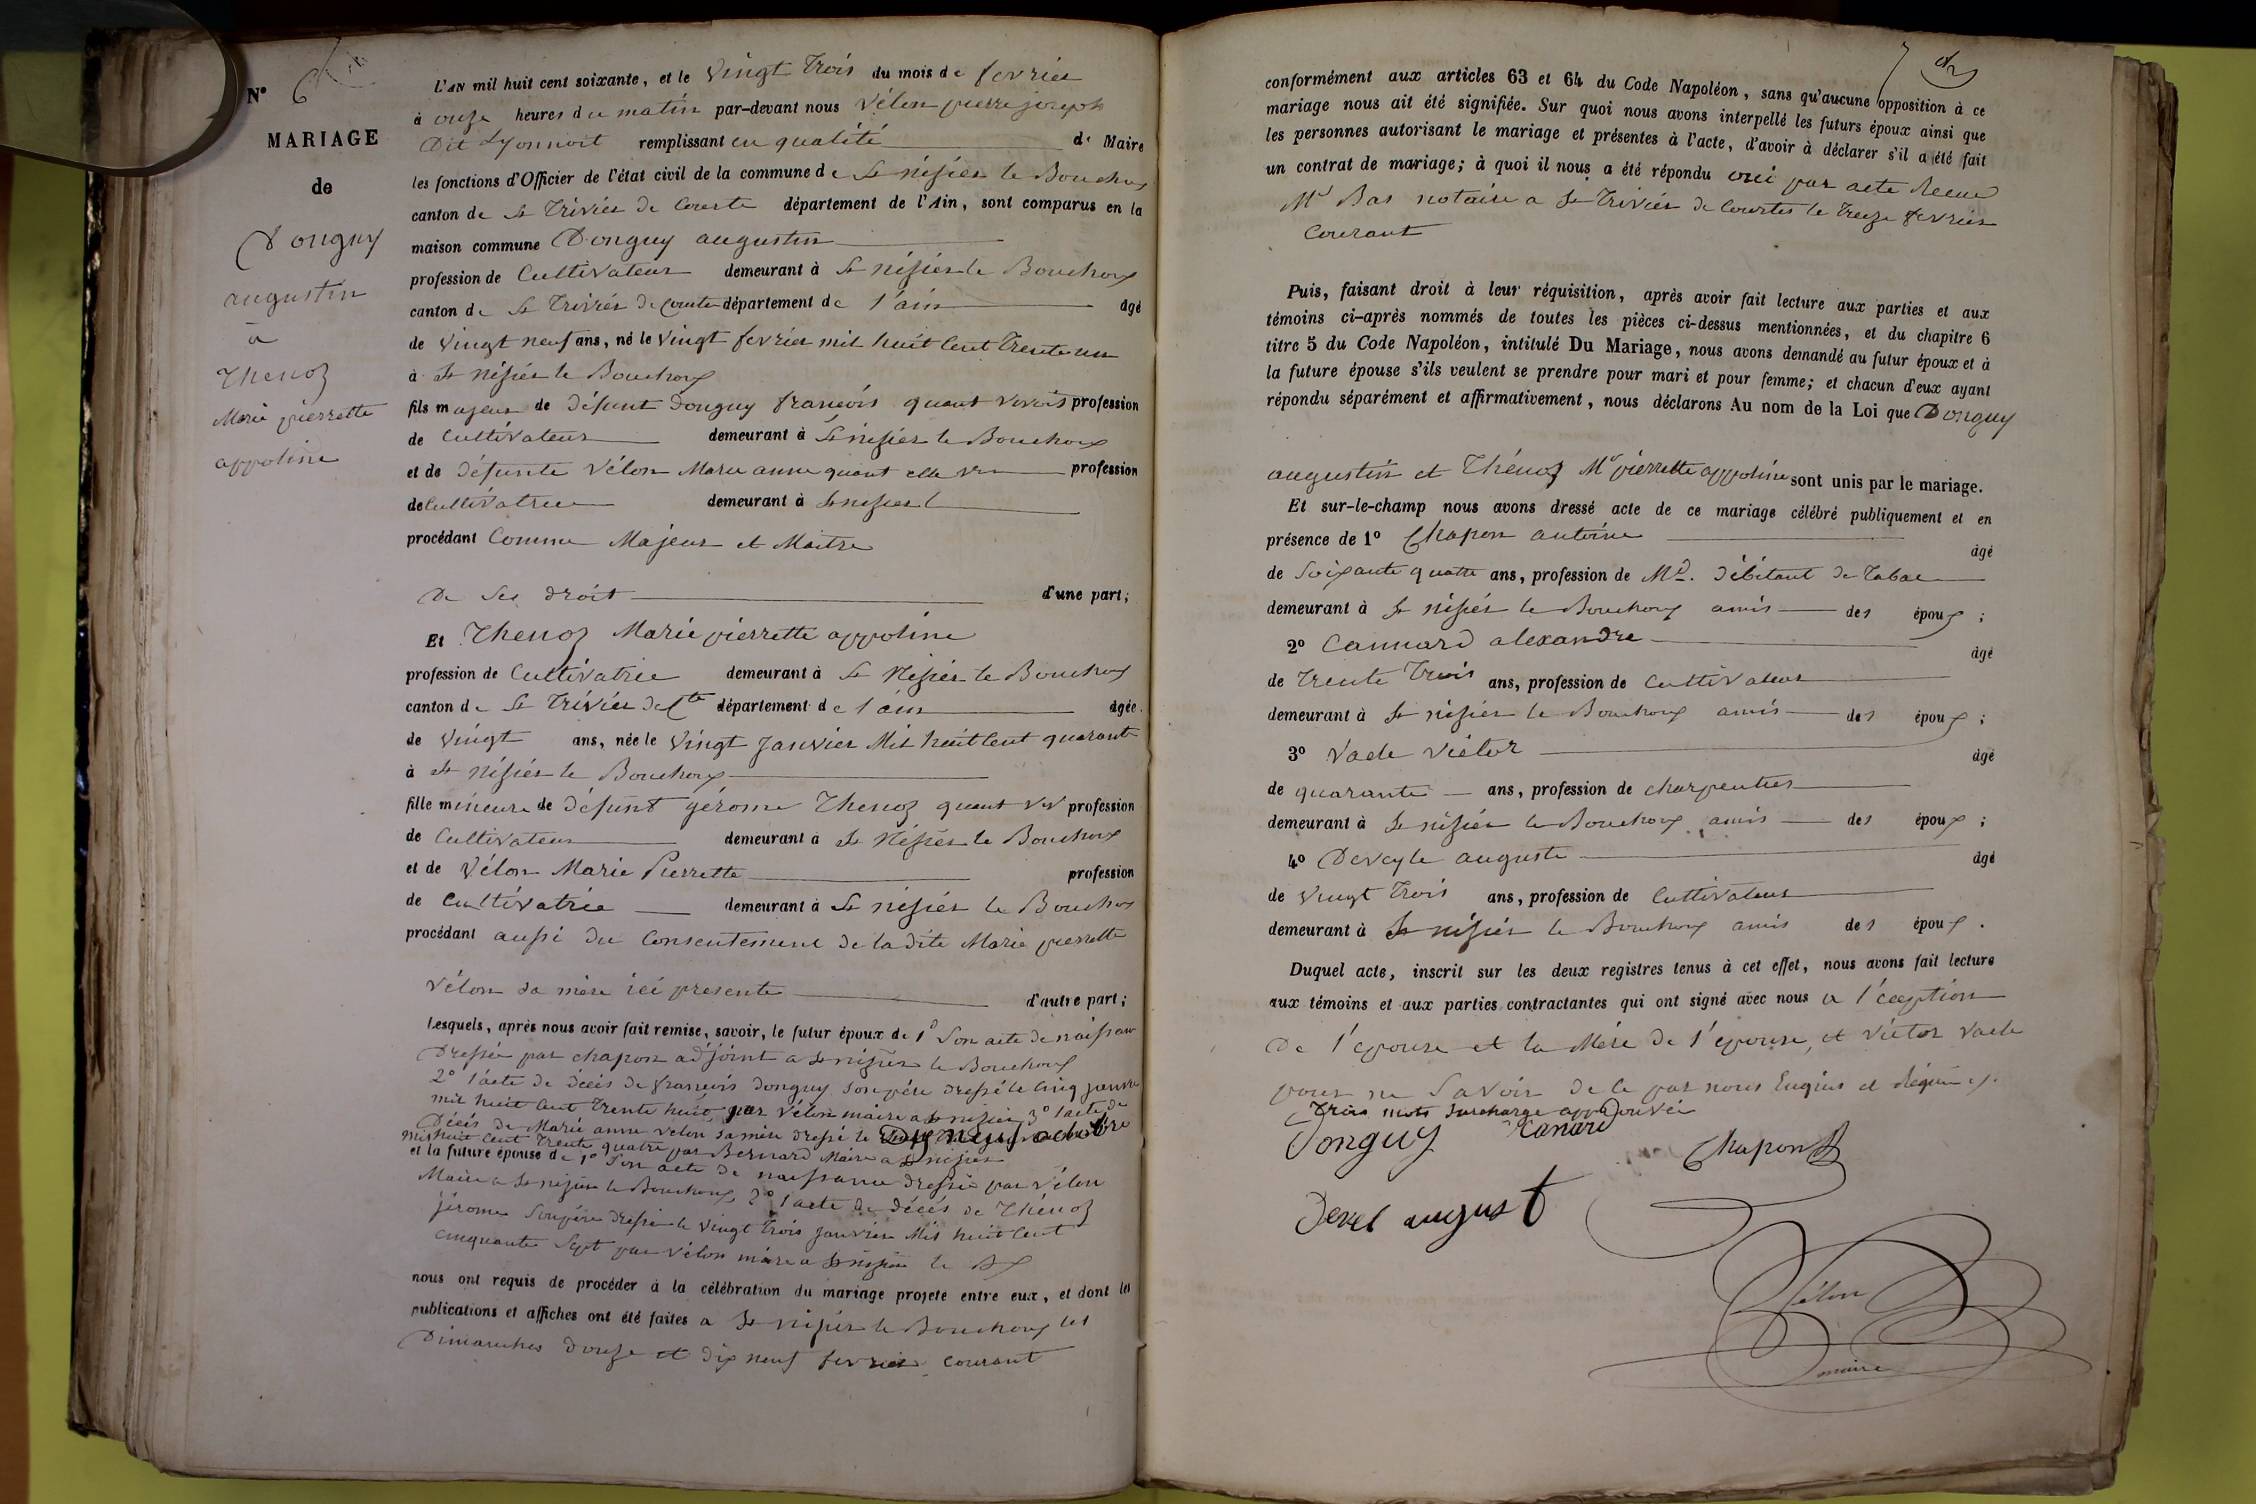 N° 6
MARIAGE
de
Donguy
augustin
à
Thenoz
Marie pierrette
appoline
L'AN mil huit cent soixante, et le vingt trois du mois de fevrier
à onze heures du matin par-devant nous Vélon pierre joseph
Dit Lyonnoit remplissant en qualité de Maire
les fonctions d'Officier de l'état civil de la commune de St nisier le Bouchoux
canton de St Trivier de Courte département de l'Ain, sont comparus en la
maison commune Donguy augustin
profession de Cultivateur demeurant à St nisier le Bouchoux
canton de St Trivier de Courte département de l'ain âgé
de vingt neuf ans, né le vingt fevrier mil huit cent trente un
à St Nisier le Bouchoux
fils majeur de défunt Donguy francois quant vivois profession
de Cultivateur demeurant à St nisier le Bouchoux
et de défunte Vélon Marie anne quant elle vi profession
de Cultivatrice demeurant à St nisier l
procédant Comme Majeur et Maitre
De ses droit d'une part;
Et Thenoz Marie pierrette appoline
profession de Cultivatrie demeurant à St Nisier le Bouchoux
canton de St Trivier de Cte département de l'ain âgée
de vingt ans, née le vingt janvier Mil huit cent quarante
à St Nisier le Bouchoux
fille mineure de défunt gérome Thenoz quant viv profession
de Cultivateur demeurant à St Nisier le Bouchoux
et de Vélon Marie Pierrette profession
de Cultivatrie demeurant à St nisier le Bouchox
procédant aussi du Consentement de la dite Marie pierrette
Vélon sa mère ici presente d'autre part;
Lesquels, après nous avoir fait remise, savoir, le futur époux de 1° Son acte de naissance
Dressée par chapon adjoint a St nisier le Bouchoux
2° l'acte de décès de francois donguy son père dressé le cinq janvier
mil huit cent trente huit par Vélon maire a St nisier 3° l'acte de
Décès de Marie anne velon sa mère dressé le Dix neuf octobre
mil huit cent trente quatre par Bernard Maire a St nisier
et la future épouse de 1° Son acte de naissance dressé par vélon
Maire a St nisier le Bouchoux 2° l'acte de décés de Thénoz
jérome son père dressé le vingt trois janvier Mil huit cent
cinquante sept par vélon maire a St nisier le Bx
nous ont requis de procéder à la célébration du mariage projeté entre eux, et dont les
publications et affiches ont été faites a St nisier le Bouchoux les
Dimanches douze et dix neuf fevrier courant
conformément aux articles 63 et 64 du Code Napoléon, sans qu'aucune opposition à ce
mariage nous ait été signifiée. Sur quoi nous avons interpellé les futurs époux ainsi que
les personnes autorisant le mariage et présentes à l'acte, d'avoir à déclarer s'il a été fait
un contrat de mariage; à quoi il nous a été répondu oui par acte Recue
Md Bas notaire a St Trivier de Courtes le treize fevrier
Courant
Puis, faisant droit à leur réquisition, après avoir fait lecture aux parties et aux
témoins ci-après nommés de toutes les pièces ci-dessus mentionnées, et du chapitre 6
titre 5 du Code Napoléon, intitulé Du Mariage, nous avons demandé au futur époux et à
la future épouse s'ils veulent se prendre pour mari et pour femme; et chacun d'eux ayant
répondu séparément et affirmativement, nous déclarons Au nom de la Loi que Donguy
augustin et Thénoz Me pierrette appoline sont unis par le mariage.
Et sur-le-champ nous avons dressé acte de ce mariage célébré publiquement et en
présence de 1° Chapon antoine âgé
de Soixante quatre ans, profession de Md. débitant de Tabac
demeurant à St nisier le Bouchoux amis des époux;
2° Cannard alexandre âgé
de Trente Trois ans, profession de Cultivateur
demeurant à St nisier le Bouchoux amis des époux;
3° Vacle victor âgé
de quarante ans, profession de charpentier
demeurant à St nisier le Bouchoux amis des époux;
4° Deveyle auguste âgé
de vingt Trois ans, profession de Cultivateur
demeurant à St nisier le Bouchoux amis des époux.
Duquel acte, inscrit sur les deux registres tenus à cet effet, nous avons fait lecture
aux témoins et aux parties contractantes qui ont signé avec nous a l'ception
De l'epouse et la Mére de l'epouse, et victor vacle
pour ne Savoir de ce par nous Enquis et Réquis
Trois mots surcharge approuvée
Donguy Canard
Chapon
Devel august
Vélon
maire